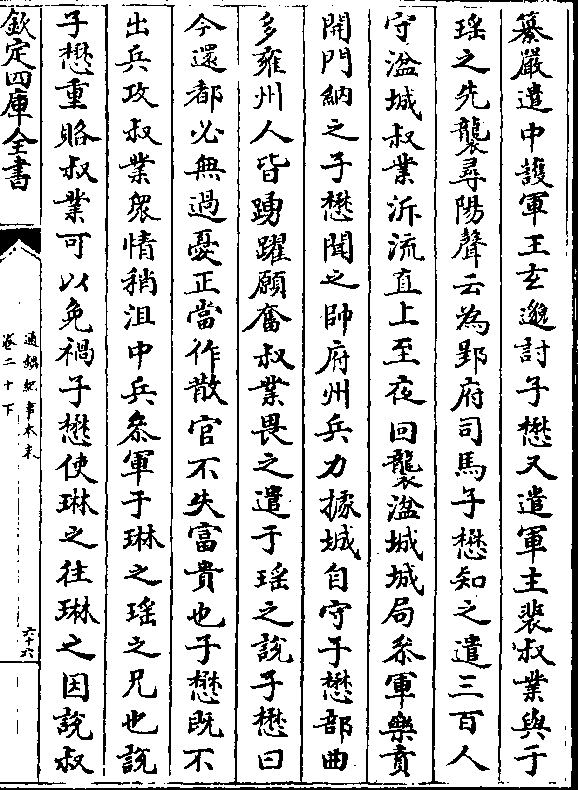 纂嚴遣中護軍王玄邈討子懋又遣軍主裴叔業與于
瑶之先襲尋陽聲云為郢府司馬子懋知之遣三百人
守湓城叔業泝流直上至夜回襲湓城城局叅軍樂賁
開門納之子懋聞之帥府州兵力據城自守子懋部曲
多雍州人皆踴躍願奮叔業畏之遣于瑶之說子懋曰
今還都必無過憂正當作散官不失富貴也子懋既不
出兵攻叔業衆情稍沮中兵叅軍于琳之瑶之兄也說
子懋重賂叔業可以免禍子懋使琳之往琳之因說叔
欽定四庫全書
通鑑紀事本末
卷二十下
六十六